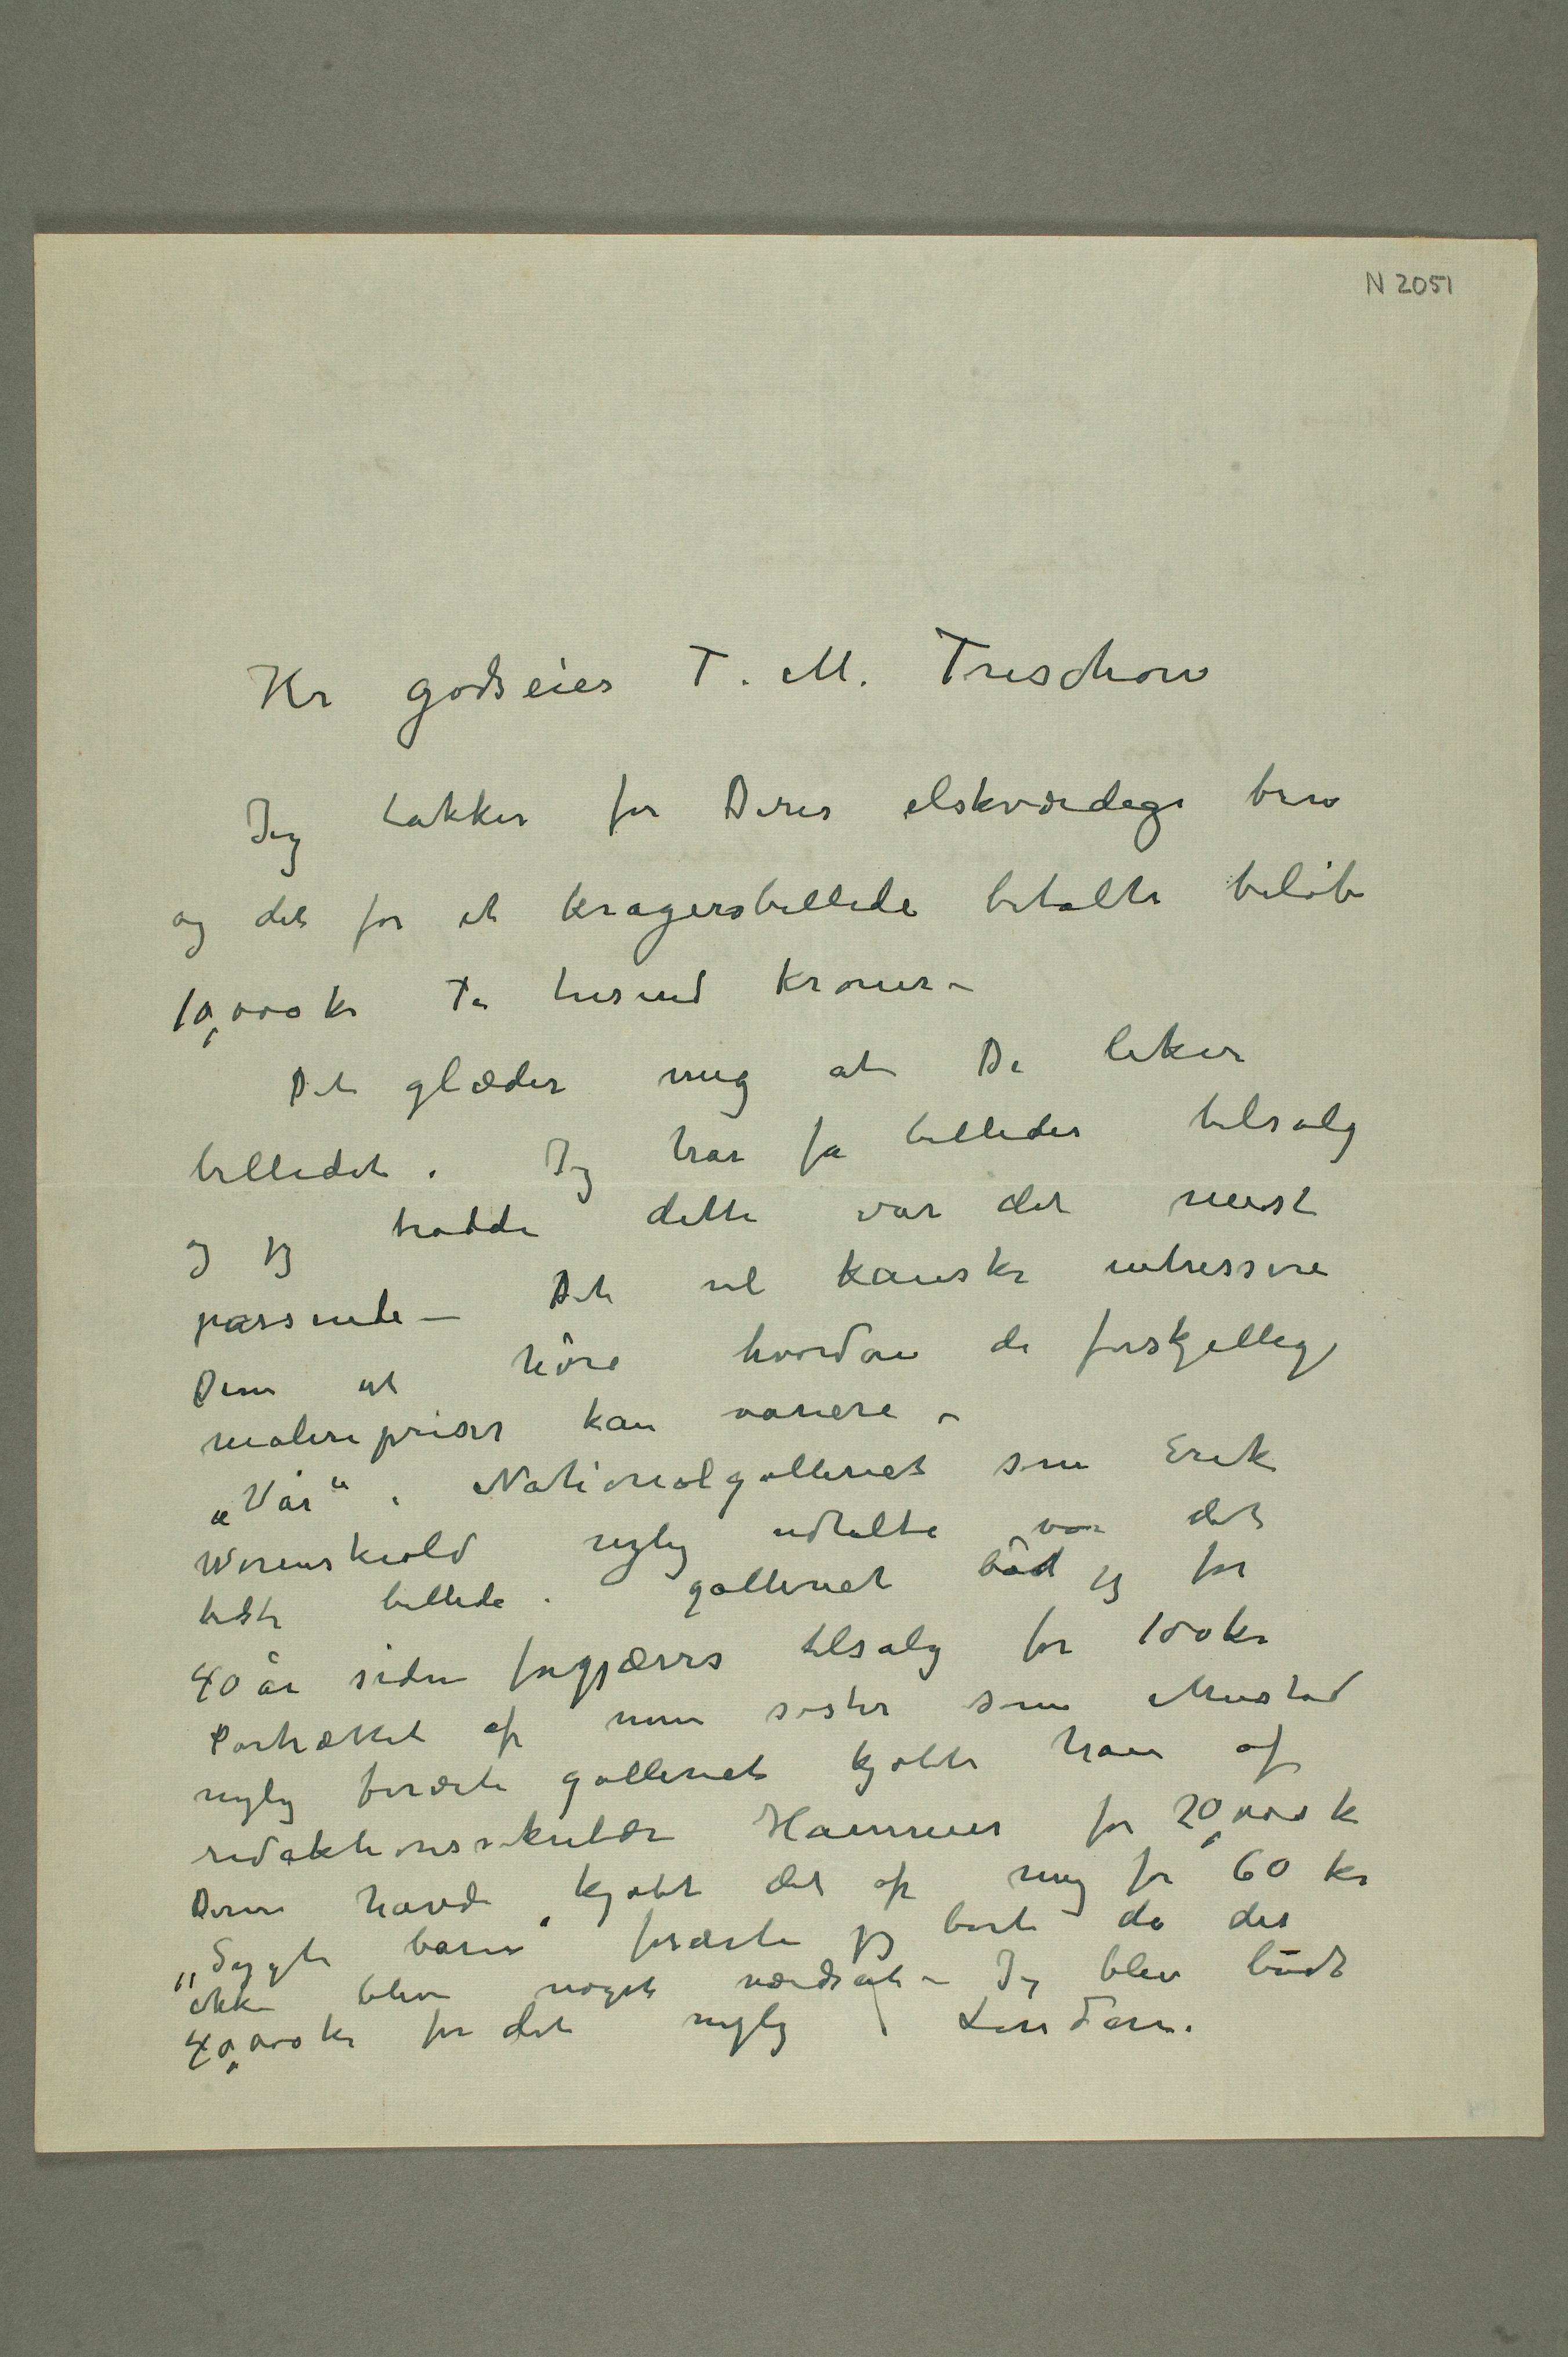 N 2051
Hr godseier T. M. Treschow
Jeg takker for Deres elskværdige brev
og det for et kragerøbillede betalte beløb
10,000 kr Ti tusend kroner –
Det glæder mig at De liker
billedet. Jeg har få billeder tilsalg
og jeg trodde dette var det mest
passende – Det vil kanske intressere
Dem at höre hvordan de forskjellige
malerepriser kan variere –
„Vår“ i Nationalgalleriet som Erik
Werenskiold nylig udtalte var det
bedste billede i galleriet böd jeg for
40 år siden forgjæves tilsalg for 100 kr
Portrættet af min søster som Mustad
nylig forærte galleriet kjøbte han af
redaktionssekretær Hammer for 20,000 k
Denne havde kjøbt det af mig for 60 kr
„Sygt barn“ forærte jeg bort da det
ikke blev noget værdsat – Jeg blev budt
40,000 kr for det nylig i London.